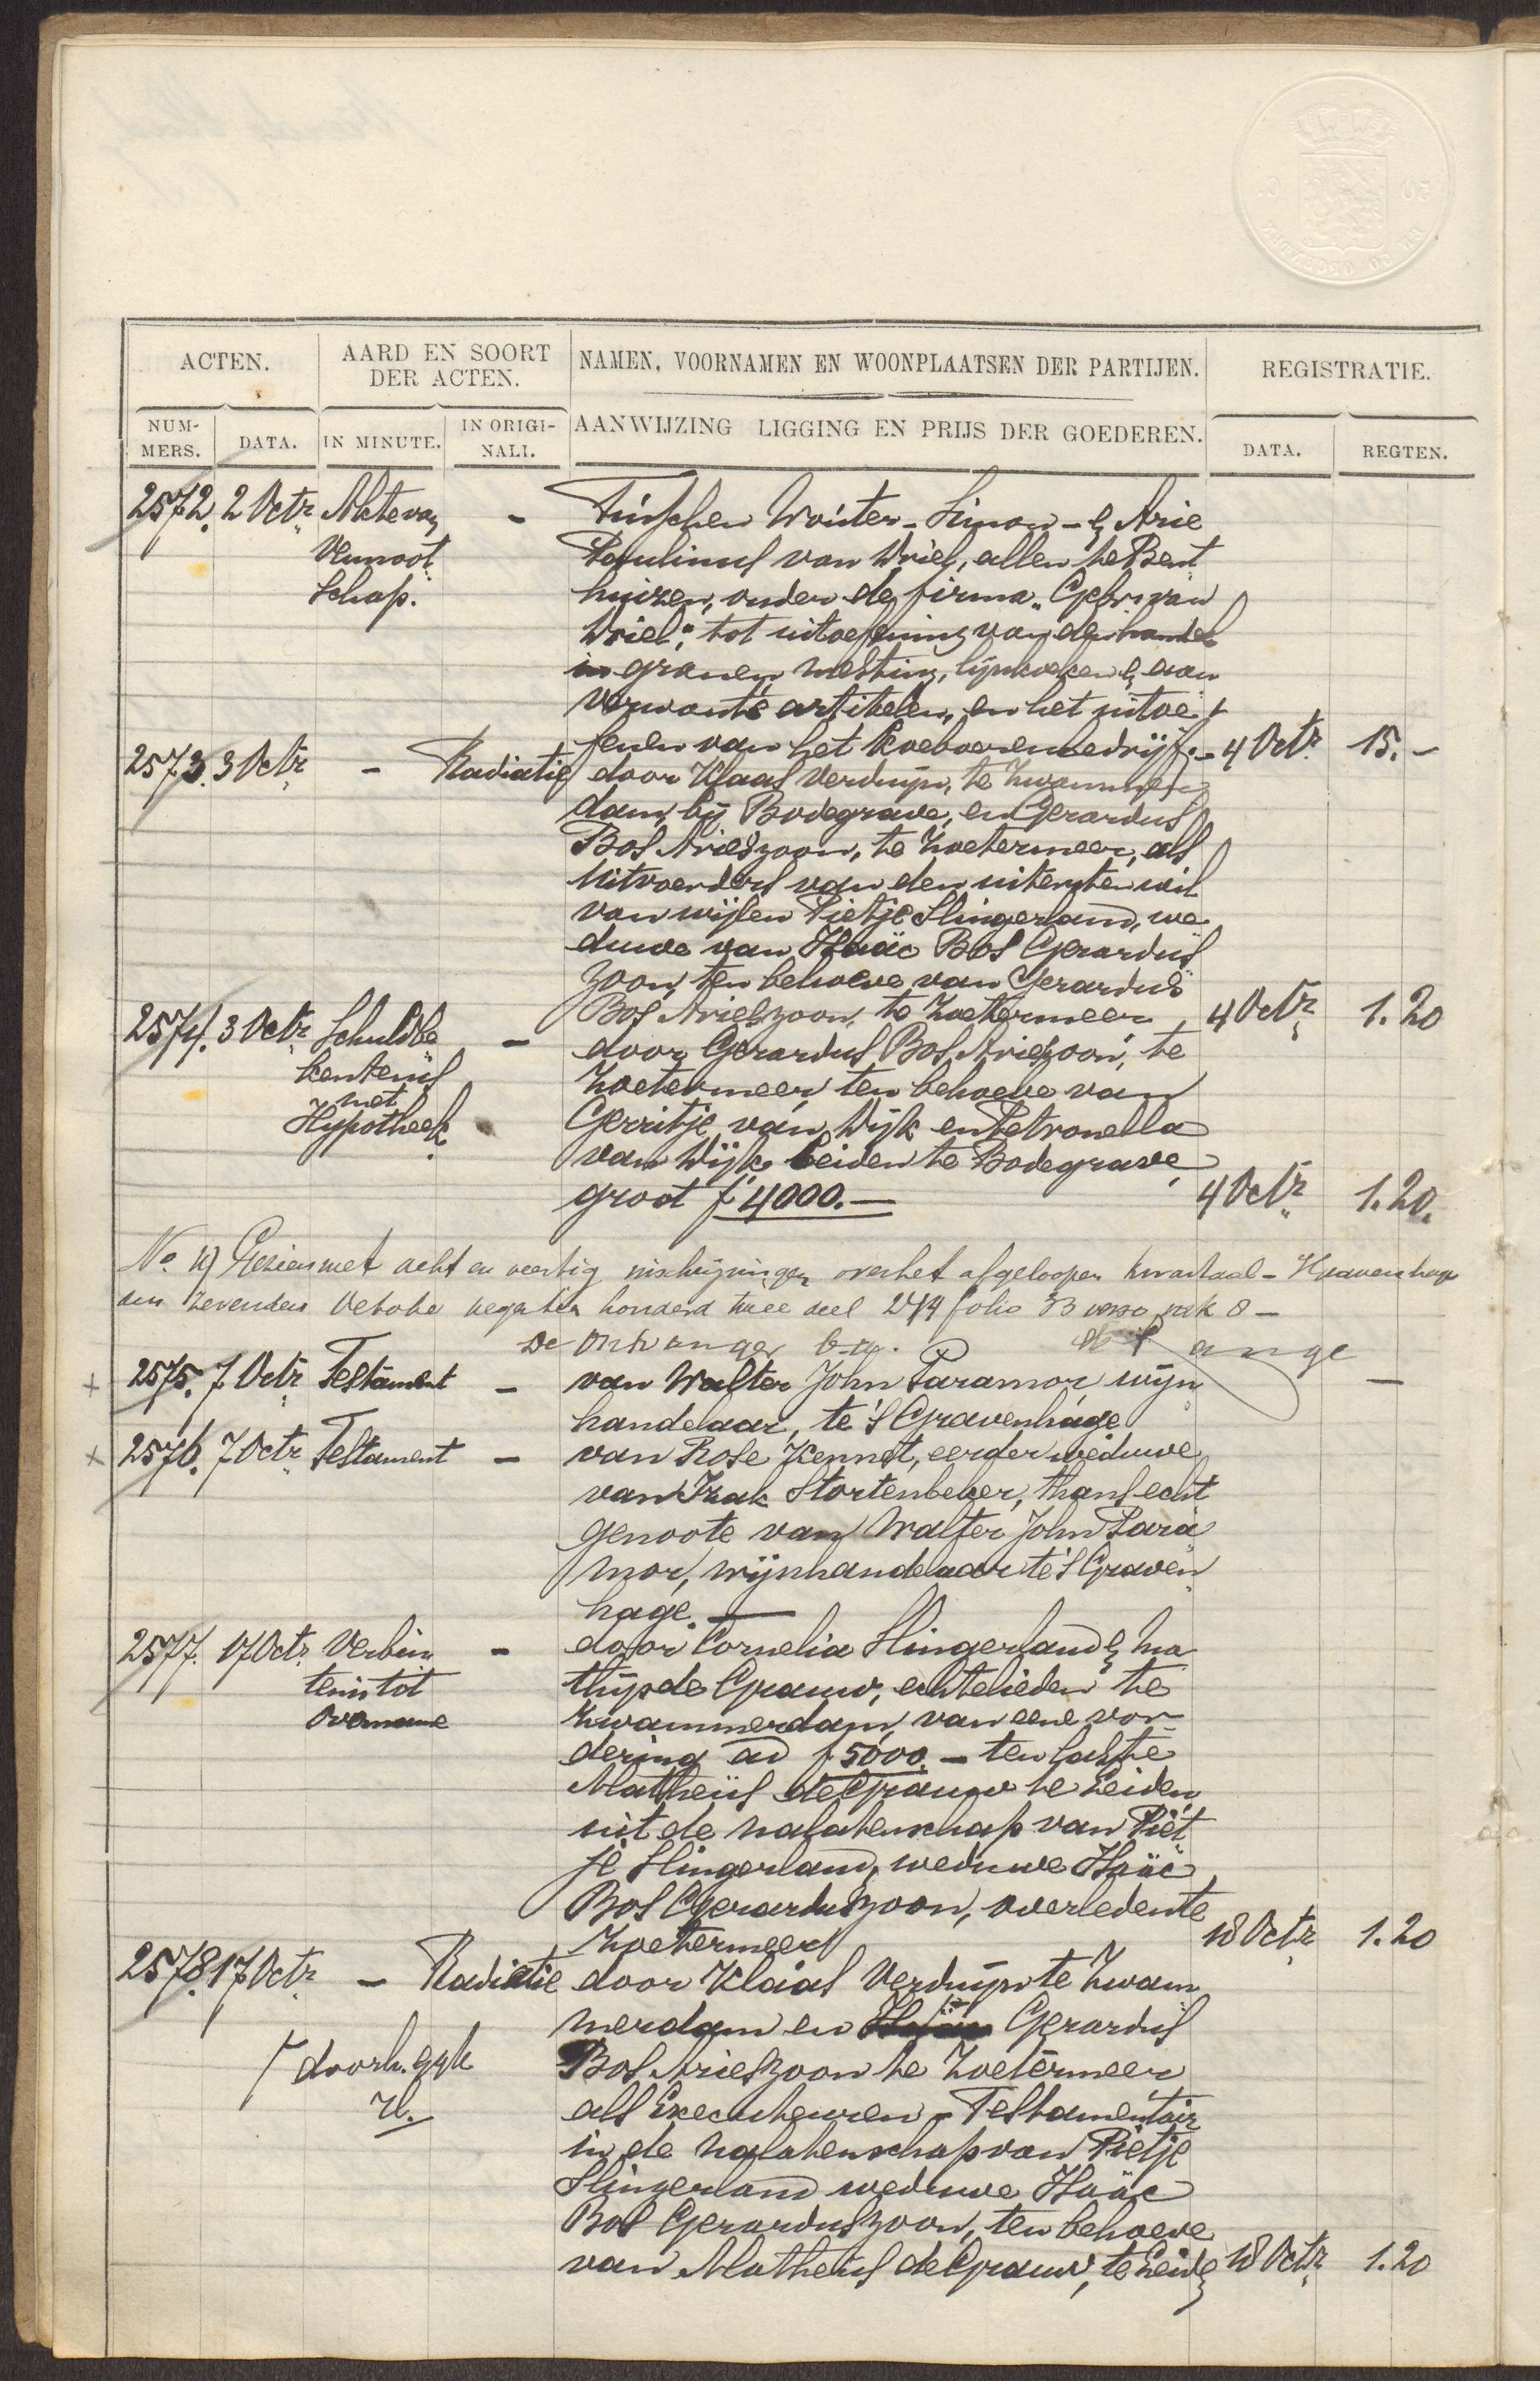 ACTEN.
AARD EN SOORT
DER ACTEN.
NAMEN, VOORNAMEN EN WOONPLAATSEN DER PARTIJEN.
REGISTRATIE.
NUM-
MERS.
DATA.
IN MINUTE.
IN ORIGI-
NALI.
AANWIJZING LIGGING EN PRIJS DER GOEDEREN.
DATA.
REGTEN.
2572. 2 Octr. Akte van - Tusschen Wouter - Simon - & Arie
Vennoot Paulinus van Vriel, allen te Bent
schap. huizen, onder de firma "Gebrs. van
Vriel", tot uitoefening van den handel
in granen, mesting, lijnkoeken & aan
verwante artikelen, en het uitoe
fenen van het koeboerenbedrijf. - 4 Octr. 15.-
2573. 3 Octr. - Radiatie door Klaas Verduijn, te Zwammer
dam, bij Bodegrave, en Gerardus
Bos Arieszoon, te Zoetermeer, als
uitvoerders van den uitersten wil
van wijlen Pietje Slingerland, we
duwe van Isaäc Bos Gerardus
zoon, ten behoeve van Gerardus
Bos Arieszoon, te Zoetermeer 4 Octr. 1.20
2574. 3 Octr. Schuldbe - door Gerardus Bos Arieszoon, te
kentenis Zoetermeer, ten behoeve van
met
Hypotheek. Gerritje van Wijk en Petronella
van Wijk beiden te Bodegrave,
groot f 4000.- 4 Octr. 1.20.
No. Gezien met acht en veertig inschrijvingen over het afgeloopen kwartaal - 's Gravenhage
den zevenden October negentien honderd twee deel 244 folio 33 verso vak 8 -
De Ontvanger
2575. 7 Octr. Testament - van Walter John Paramor wijn -
handelaar, te 's Gravenhage
2576. 7 Octr. Testament - van Rose Kennet, eerder weduwe
van Izak Stortenbeker, thans echt
genoote van Walter John Para
mor, wijnhandelaar te 's Graven
hage. -
2577. 17 Octr. Verbin - door Cornelia Slingerland & Ma
tenis tot thijs de Grauw, echtelieden te
overname Zwammerdam, van eene vor-
dering ad f 5000.- ten laste
Matheüs de Grauw te Leiden
uit de nalatenschap van Piet
je Slingerland, weduwe Isaäc
Bos Gerarduszoon, overleden te
Zoetermeer 18 Octr. 1.20
2578. 17 Octr. - Radiatie door Klaas Verduijn te Zwam
merdam en Gerardus
doorh. ggk Bos Arieszoon te Zoetermeer
als Executeuren - Testamentair
in de nalatenschap van Pietje
Slingerland weduwe Isaäc
Bos Gerarduszoon, ten behoeve
van Matheüs de Grauw, te Leiden 18 Octr. 1.20